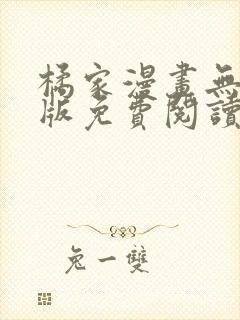 橘家漫畫無
版免費閱讀
兔一雙